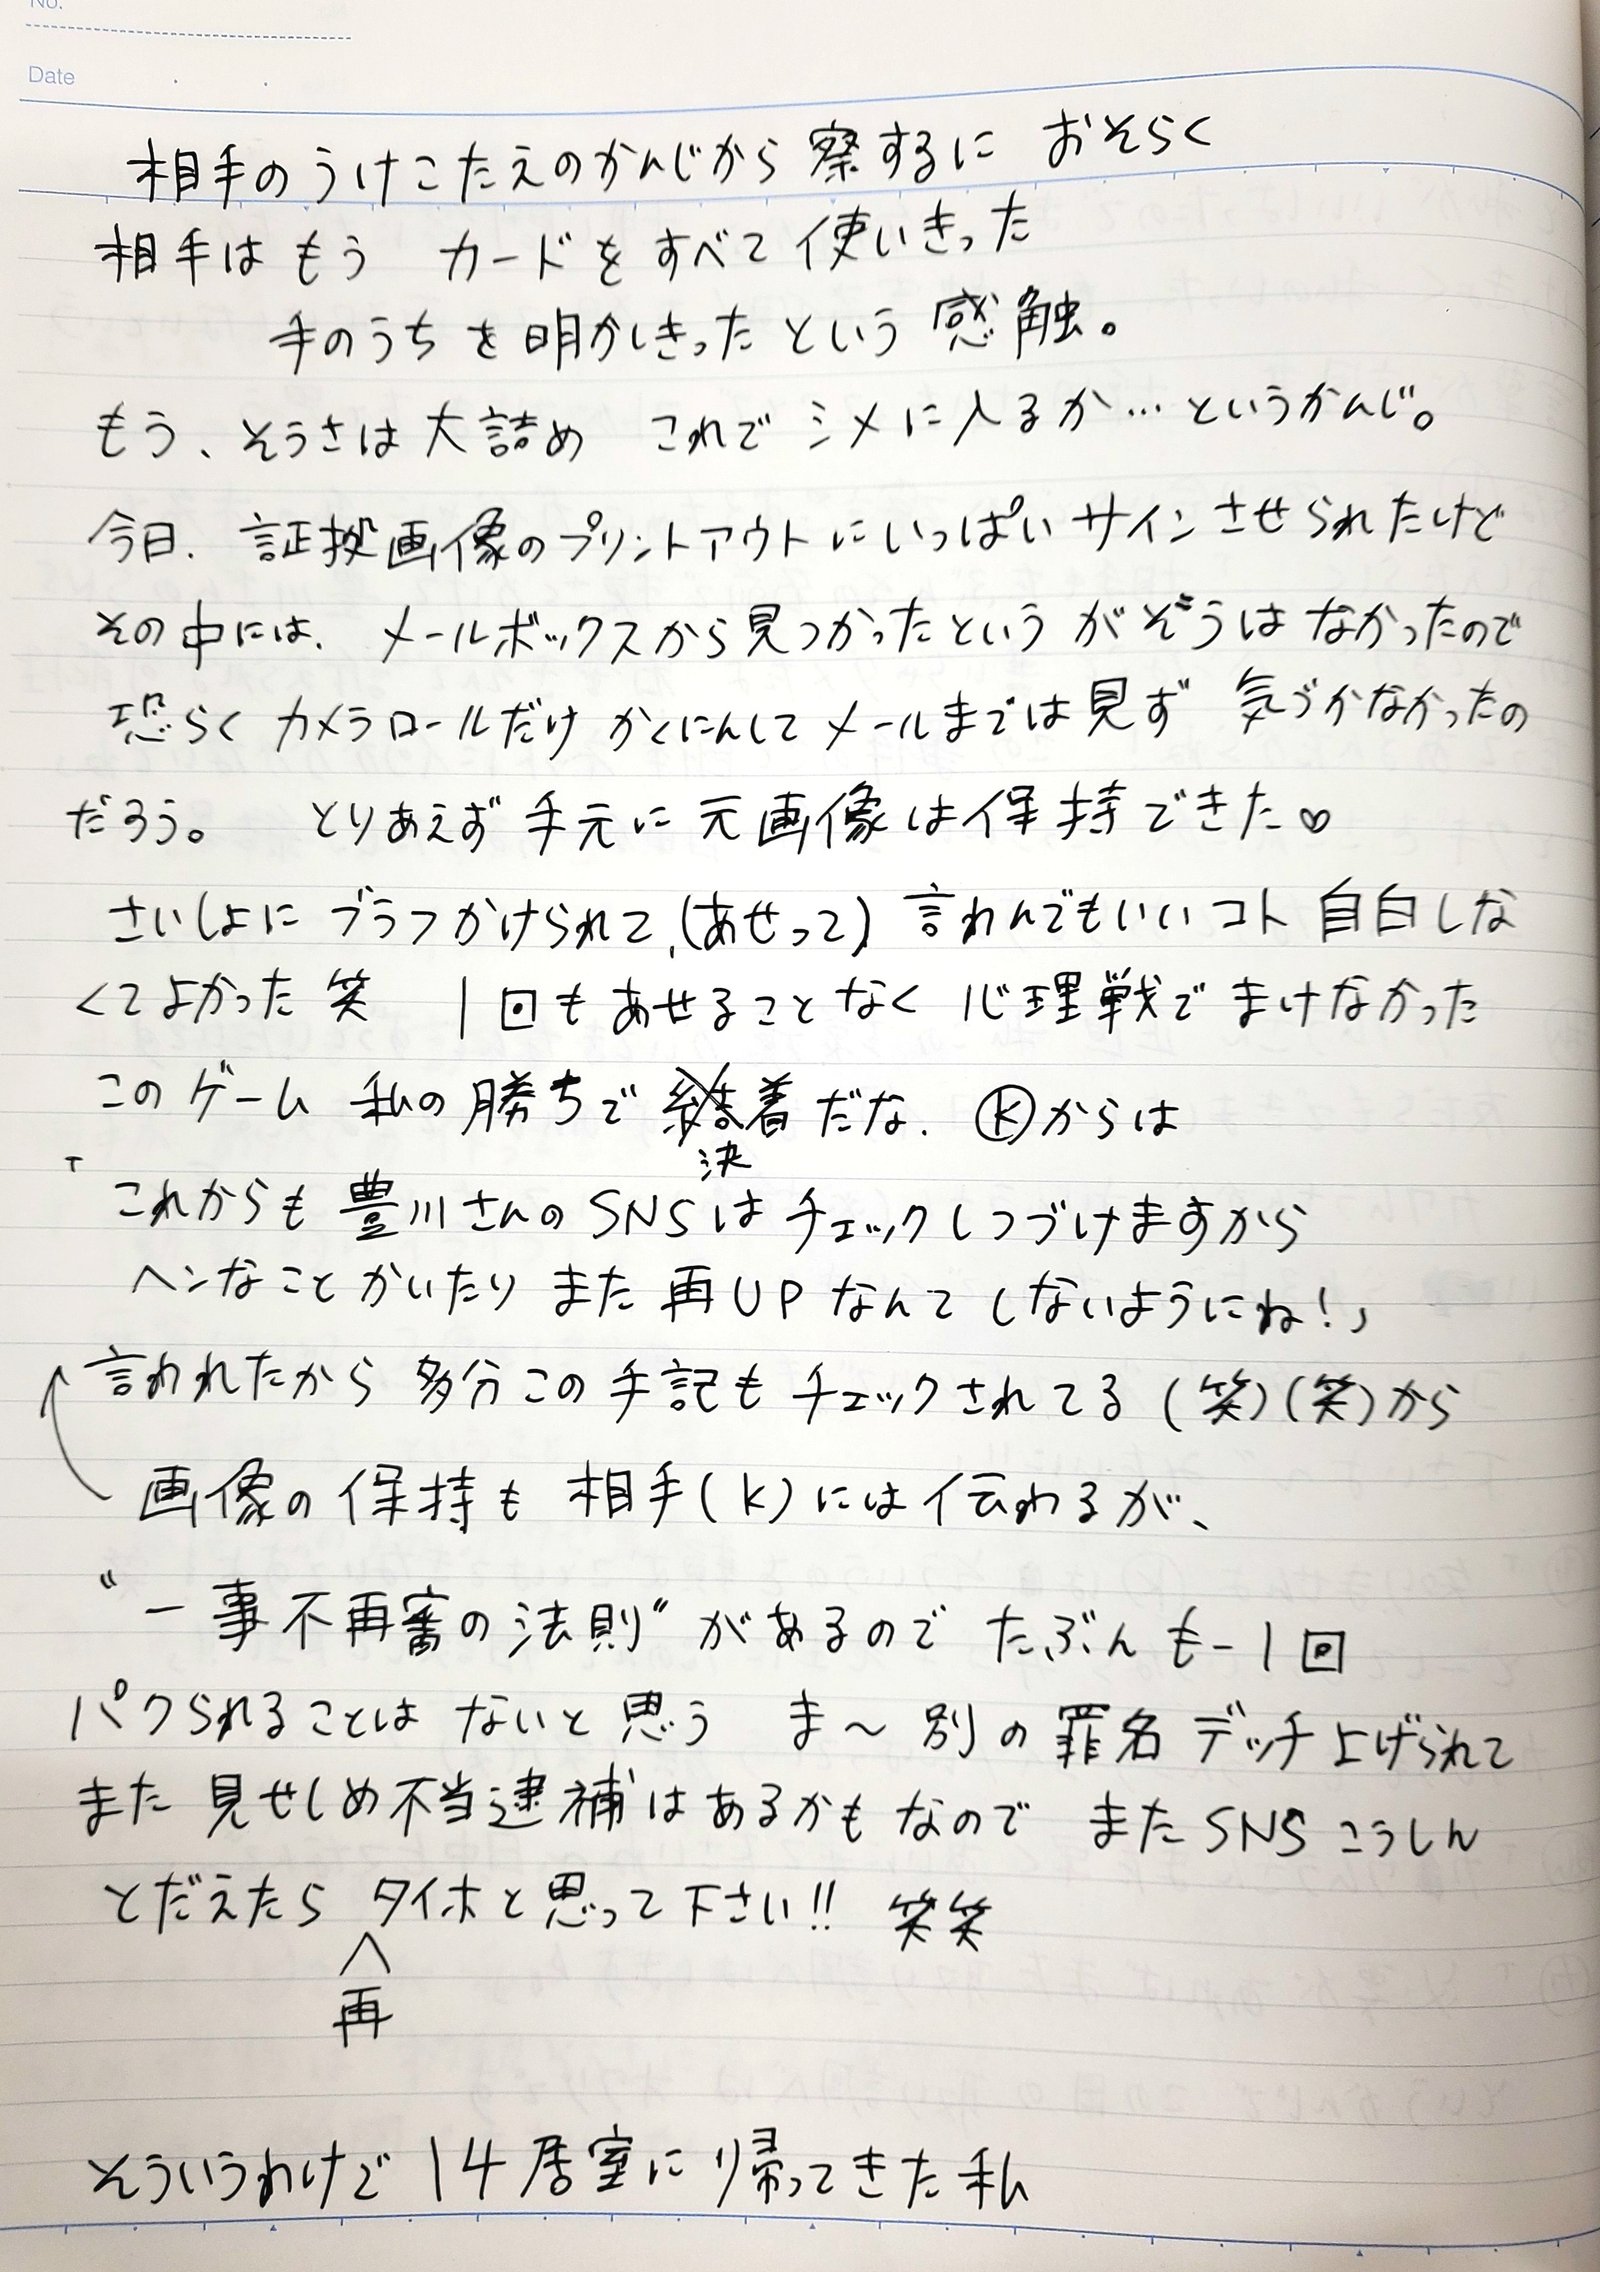 No.
Date
相手のうけこたえのかんじから察するに おそらく
相手はもう カードをすべて使いきった
手のうちを明かしきったという感触。
もう、そうさは大詰め これでシメに入るか…というかんじ。
今日、証拠画像のプリントアウトにいっぱいサインさせられたけど
その中には、メールボックスから見つかったというがぞうはなかったので
恐らくカメラロールだけかくにんしてメールまでは見ず 気づかなかったの
だろう。 とりあえず手元に元画像は保持できた♡
さいしょにブラフかけられて、(あせって) 言わんでもいいコト自白しな
くてよかった笑 1回もあせることなく心理戦でまけなかった
このゲーム 私の勝ちで決着だな. Ⓚからは
「これからも豊川さんのSNSはチェックしつづけますから
ヘンなことかいたり また再UPなんてしないようにね!」
言われたから 多分この手記もチェックされてる(笑)(笑)から
画像の保持も 相手(K)には伝わるが、
"一事不再審の法則"があるので たぶんもー1回
パクられることはないと思う ま〜別の罪名デッチ上げられて
また見せしめ不当逮補はあるかもなので またSNSこうしん
とだえたら再タイホと思って下さい!! 笑笑
そういうわけで14居室に帰ってきた私